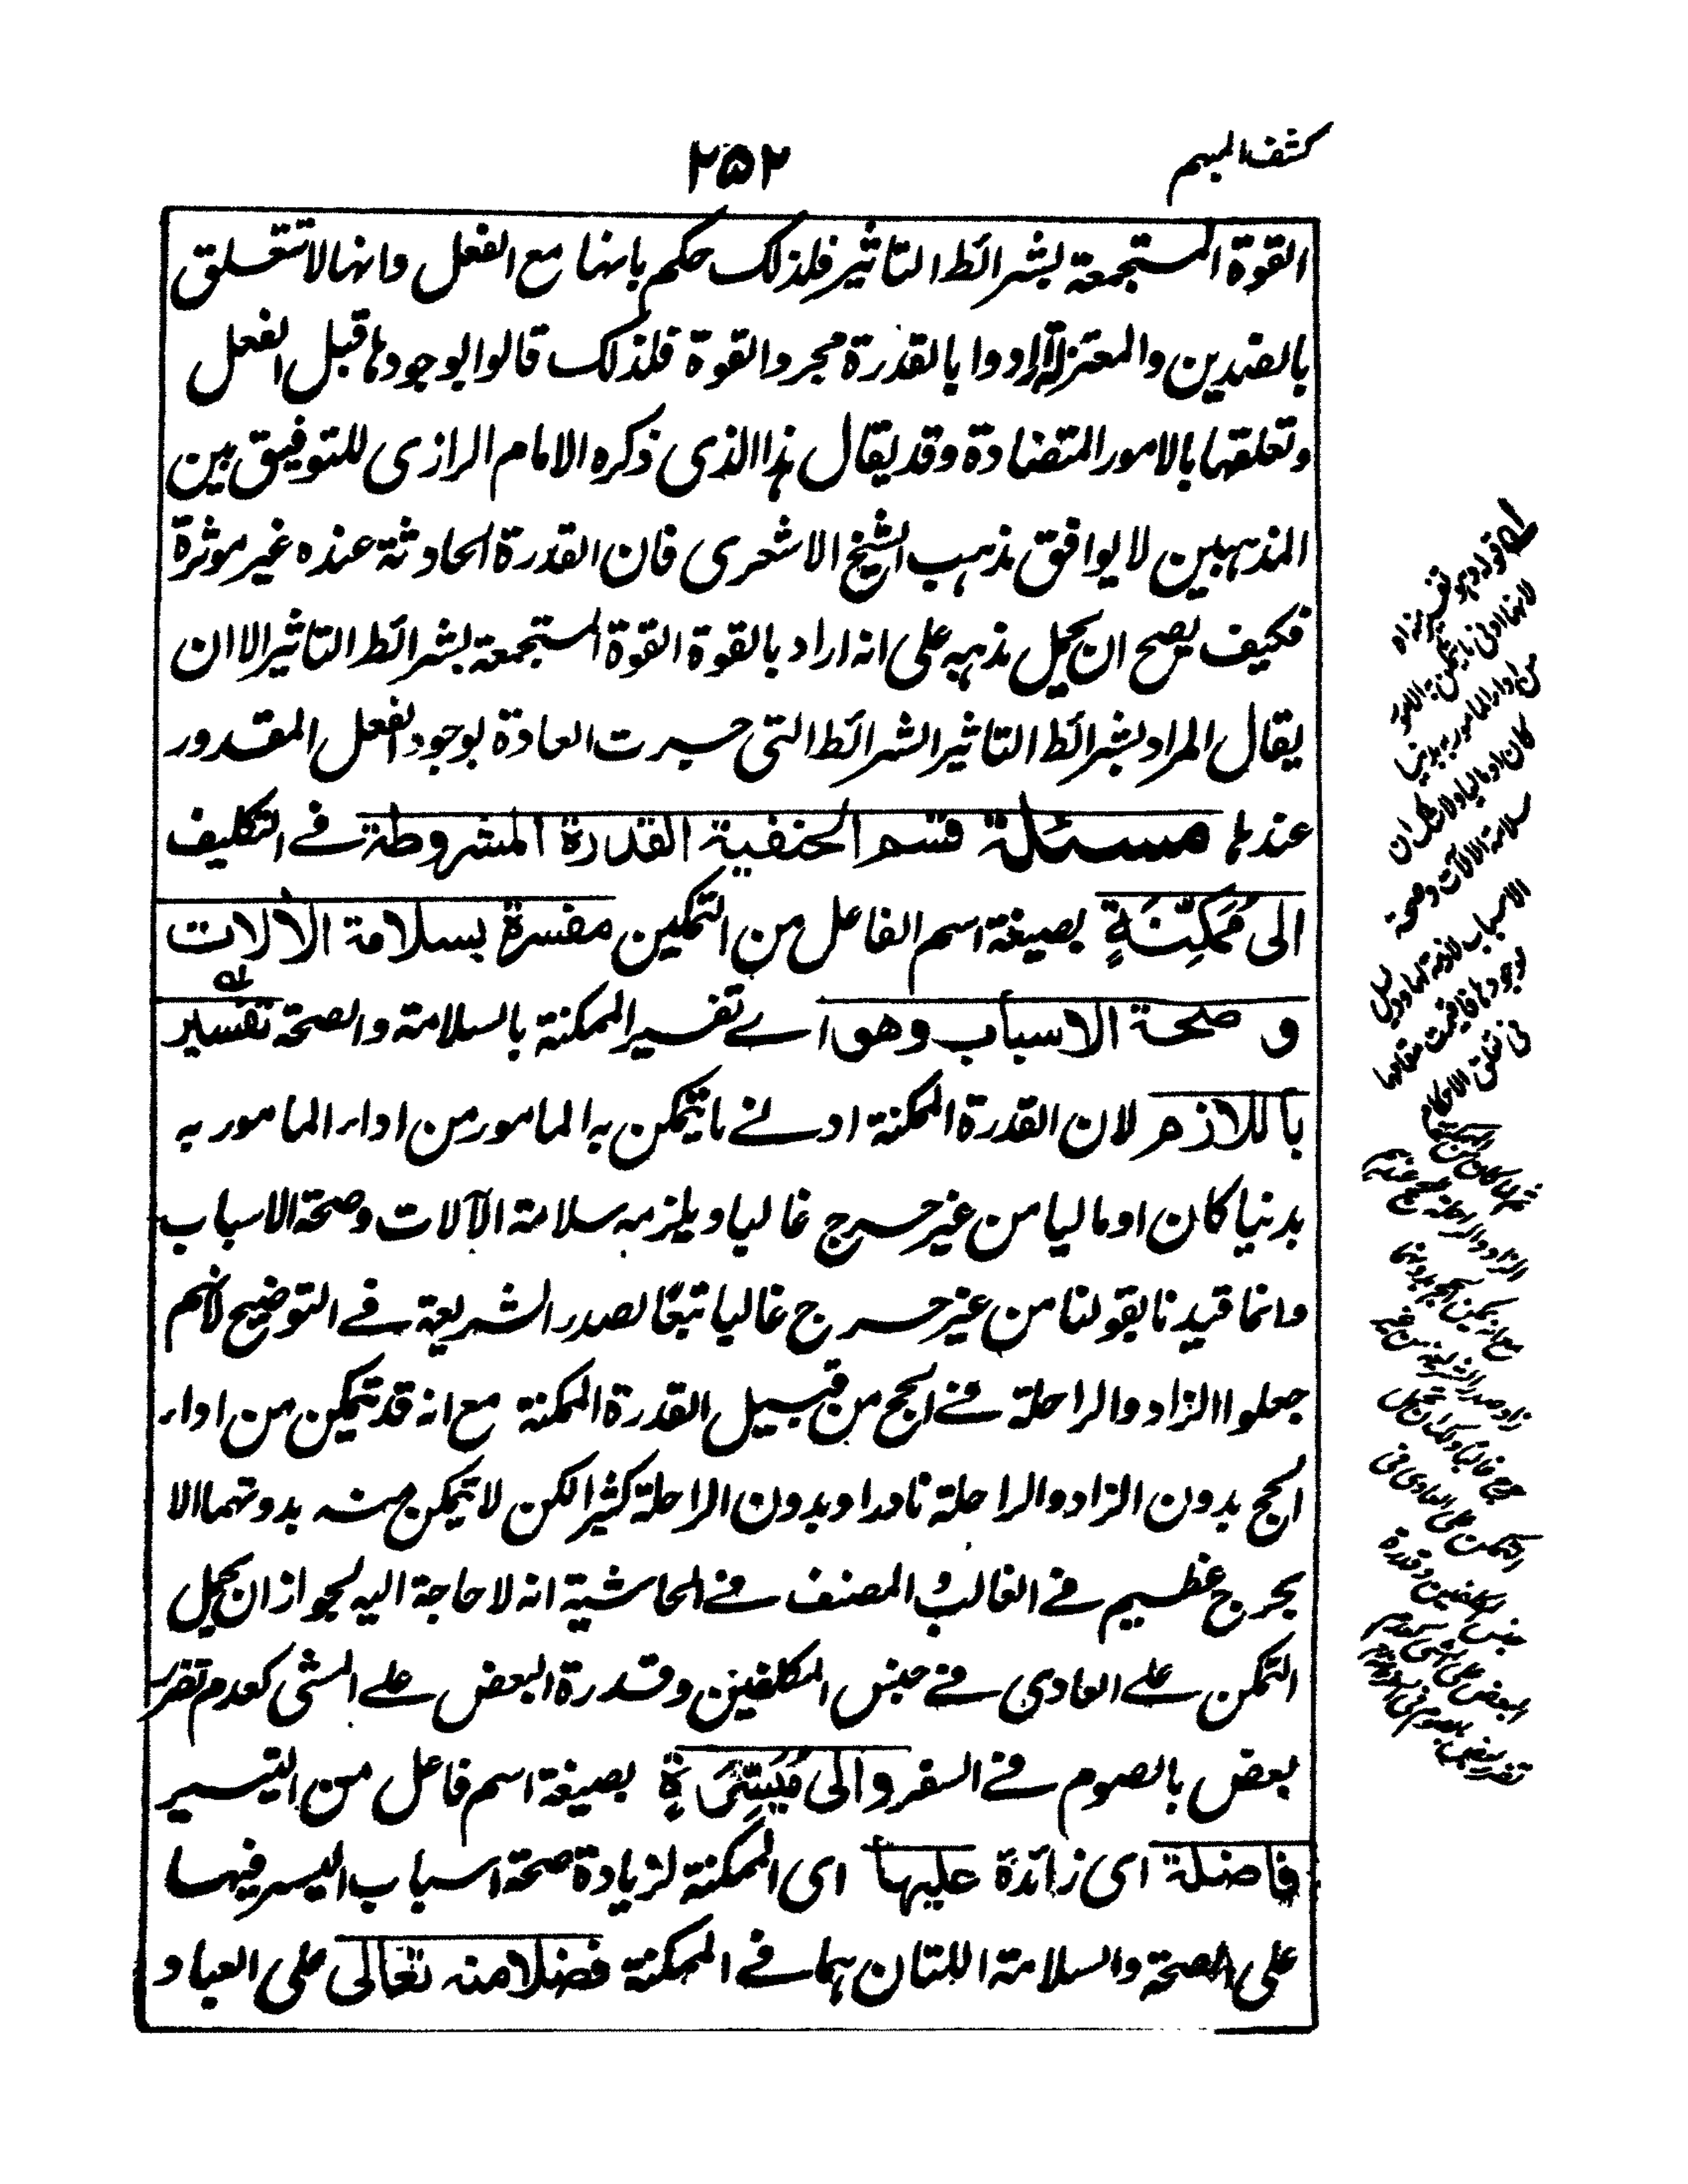 كشف المبهم
۲۵۲
القوة المستجمعة بشرائط التاثير فلذلك حكم بانها مع الفعل وانها لا تتعلق
بالضدين والمعتزلة ارادوا بالقدرة مجرد القوة فلذلك قالوا بوجودها قبل الفعل
وتعلقها بالامور المتضادة وقد يقال هذا الذى ذكره الامام الرازى للتوفيق بين
المذهبين لا يوافق مذهب الشيخ الاشعرى فان القدرة الحادثة عنده غير موثرة
فكيف يصح ان يحمل مذهبه على انه اراد بالقوة القوة المستجمعة بشرائط التاثير الا ان
يقال المراد بشرائط التاثير الشرائط التى جرت العادة بوجود الفعل المقدور
عندها مسئلة قسم الحنفية القدرة المشروطة فے التكليف
الى مُمَكِّنَةٍ بصيغة اسم الفاعل من التمكين مفسرة بسلامة الألات
و صحة الاسباب وهو اے تفسير الممكنة بالسلامة والصحة تفسير
باللازم لان القدرة الممكنة ادنے ما يتمكن به المامور من اداء المامور به
بدنيا كان او ماليا من غير حرج غاليا ويلزمه سلامة الآلات وصحة الاسباب
وانما قيدنا بقولنا من غير حرج غالبا تبعًا لصدر الشريعة فے التوضيح لانهم
جعلوا الزاد والراحلة فے الحج من قبيل القدرة الممكنة مع انه قد تمكن من اداء
الحج بدون الزاد والراحلة نادرا وبدون الراحلة كثيرا لكن لا يتمكن منه بدونهما الا
بحرج عظيم فے الغالب و المصنف فے الحاشية انه لا حاجة اليه لجواز ان يحمل
التمكن علے العادى فے جنس المكلفين وقدرة البعض علے المشى كعدم تضرر
بعض بالصوم فے السفر والى مُيَسِّرَةٍ بصيغة اسم فاعل من التيسير
فاضلة اى زائدة عليها اى الممكنة لزيادة صحة اسباب اليسر فيها
على الصحة والسلامة اللتان هما فے الممكنة فضلا منه تعالى على العباد
لانها ادنى ما يتمكن به المامور
من اداء المامور به بدنيا
كان او ماليا ولا شك ان
سلامة الآلات وصحة
الاسباب لازمة لها
الزاد والراحلة